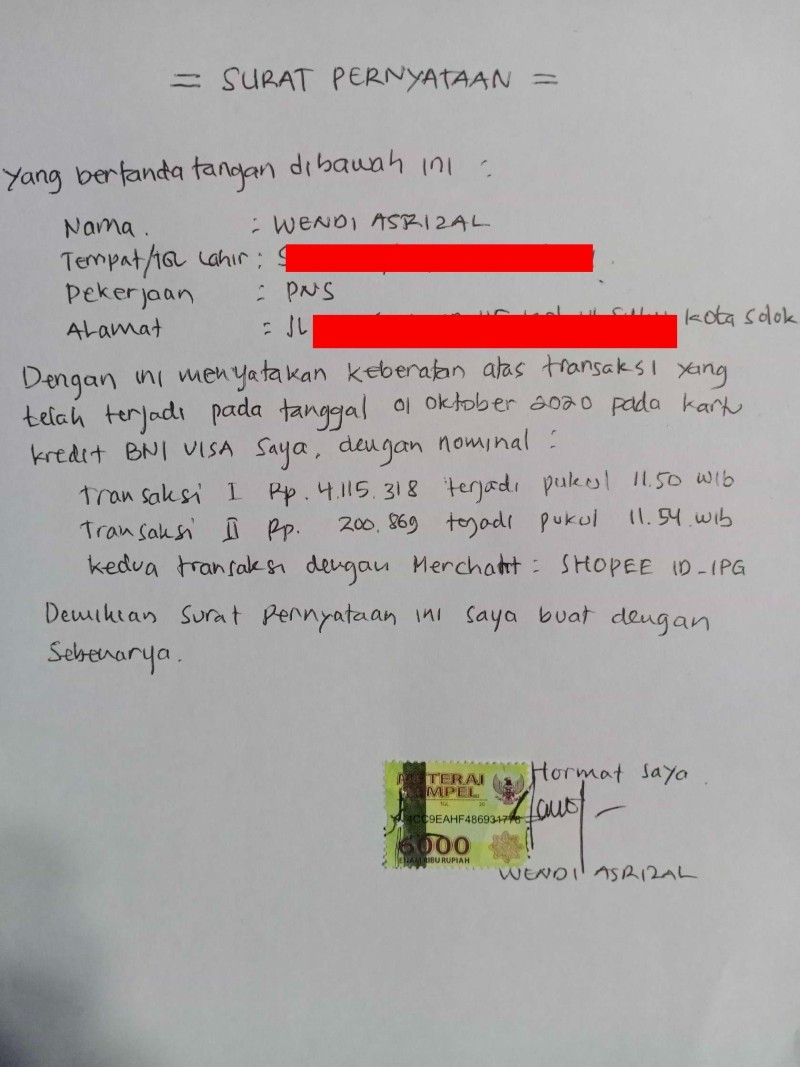 = SURAT PERNYATAAN =
Yang bertanda tangan dibawah ini :
Nama. : WENDI ASRIZAL
Tempat/TGL Lahir : S
Pekerjaan : PNS
ALamat : JL kota solok
Dengan ini menyatakan keberatan atas transaksi yang
telah terjadi pada tanggal 01 oktober 2020 pada kartu
kredit BNI VISA saya, dengan nominal :
transaksi I Rp. 4.115.318 terjadi pukul 11.50 wib
transaksi II Rp. 200.869 tejadi pukul 11.54 wib
kedua transaksi dengan Merchant : SHOPEE ID_IPG
Demikian surat pernyataan ini saya buat dengan
Sebenarya.
Hormat saya
METERAI
TEMPEL
TGL. 20
6000
ENAM RIBU RUPIAH
WENDI ASRIZAL